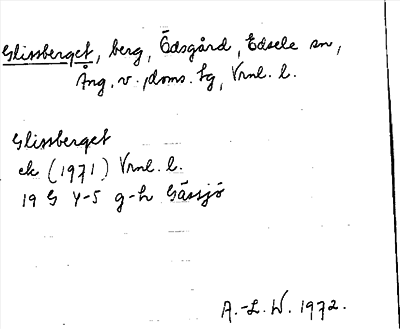 Glissberget, berg, Edsgård, Edsele sn,
Ång. v. doms. lg, Vrnl. l.
Glissberget
ek (1971) Vrnl. l.
19 G 4-5 g-h Gåssjö
A.-L. W. 1972.